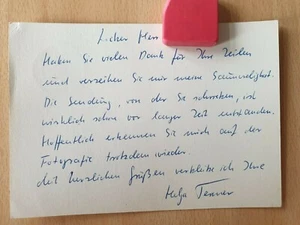 Lieber Herr
Haben Sie vielen Dank für Ihre Zeilen
und verzeihen Sie mir meine Saumseligkeit.
Die Sendung, von der Sie schreiben, ist
wirklich schon vor langer Zeit entstanden.
Hoffentlich erkennen Sie mich auf der
Fotografie trotzdem wieder.
Mit herzlichen Grüßen verbleibe ich Ihre